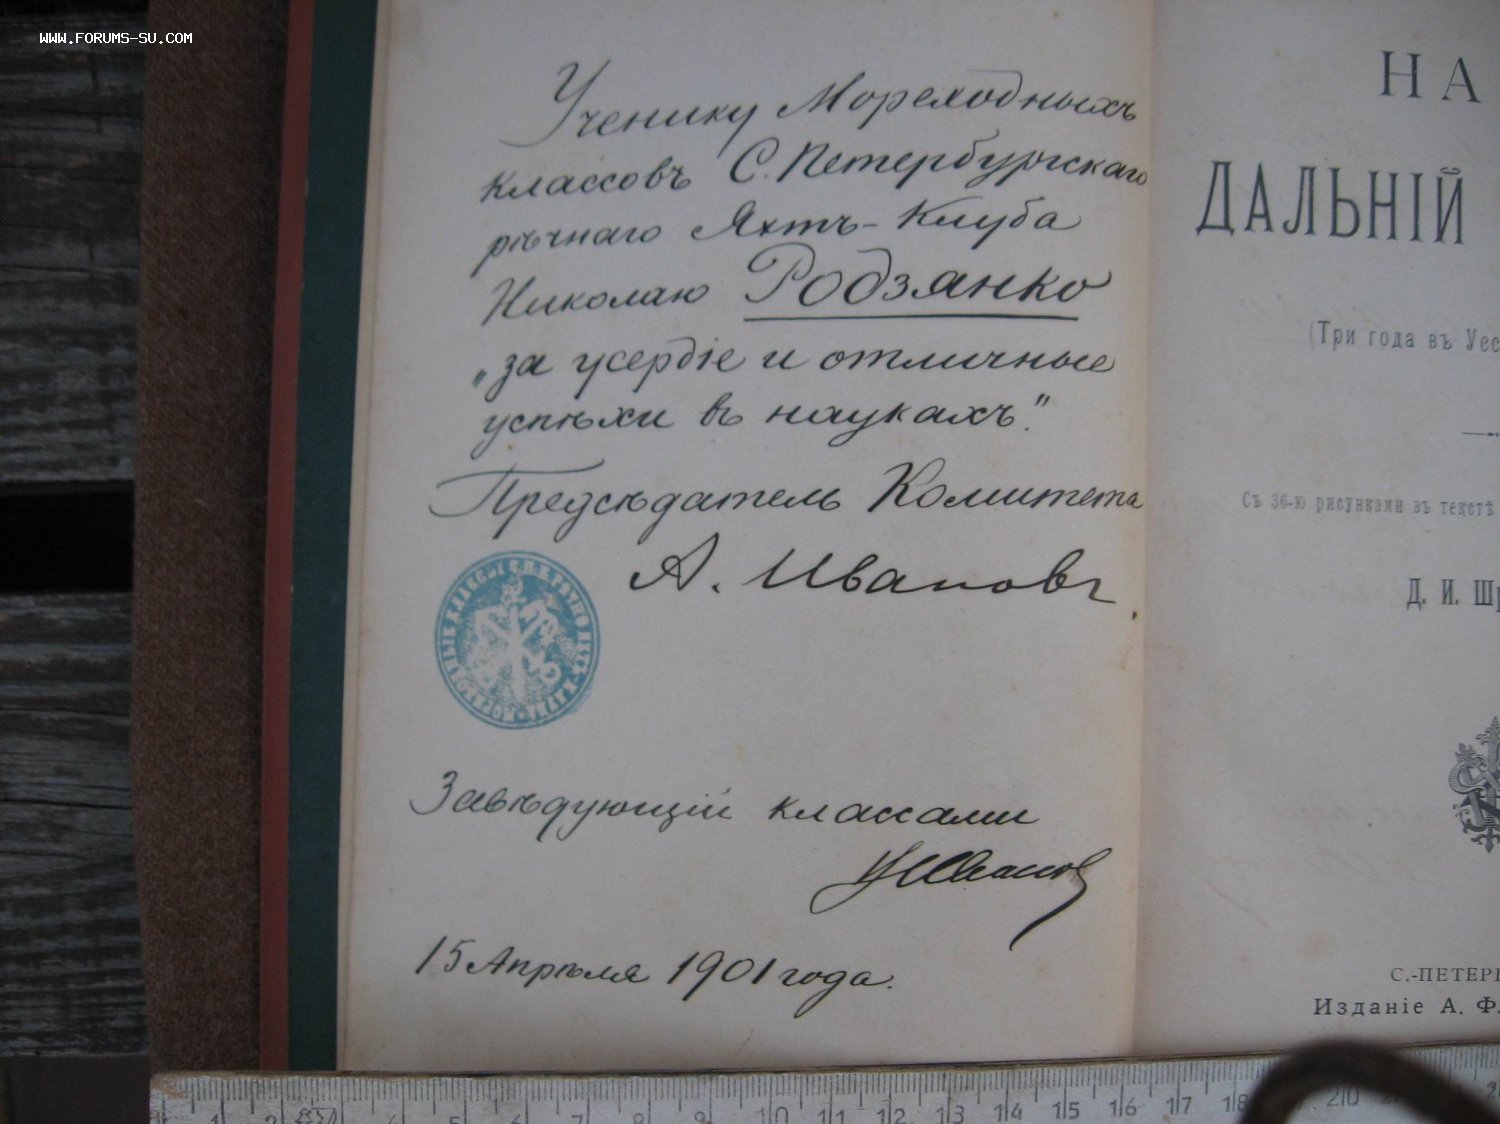 WWW.FORUMS-SU.COM
Ученику Мореходныхъ
классовъ С. Петербургскаго
рѣчнаго Яхтъ-Клуба
Николаю Родзянко
„за усердіе и отличные
успѣхи въ наукахъ".
Предсѣдатель Комитета
А. Ивановъ
Завѣдующій классами
15 Апрѣля 1901 года.
НА
ДАЛЬНІЙ
(Три года въ Усс
Съ 36-ю рисунками въ текстѣ
Д. И. Шр
С.-ПЕТЕРБ
Изданіе А. Ф.
1 2 4 5 6 7 8 9 10 11 12 13 14 15 16 17 18 20